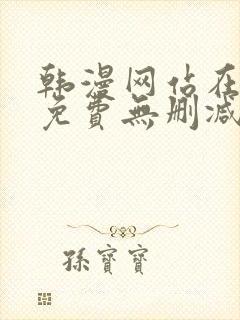 韩漫网佔在
免費無删减
孫寶寶